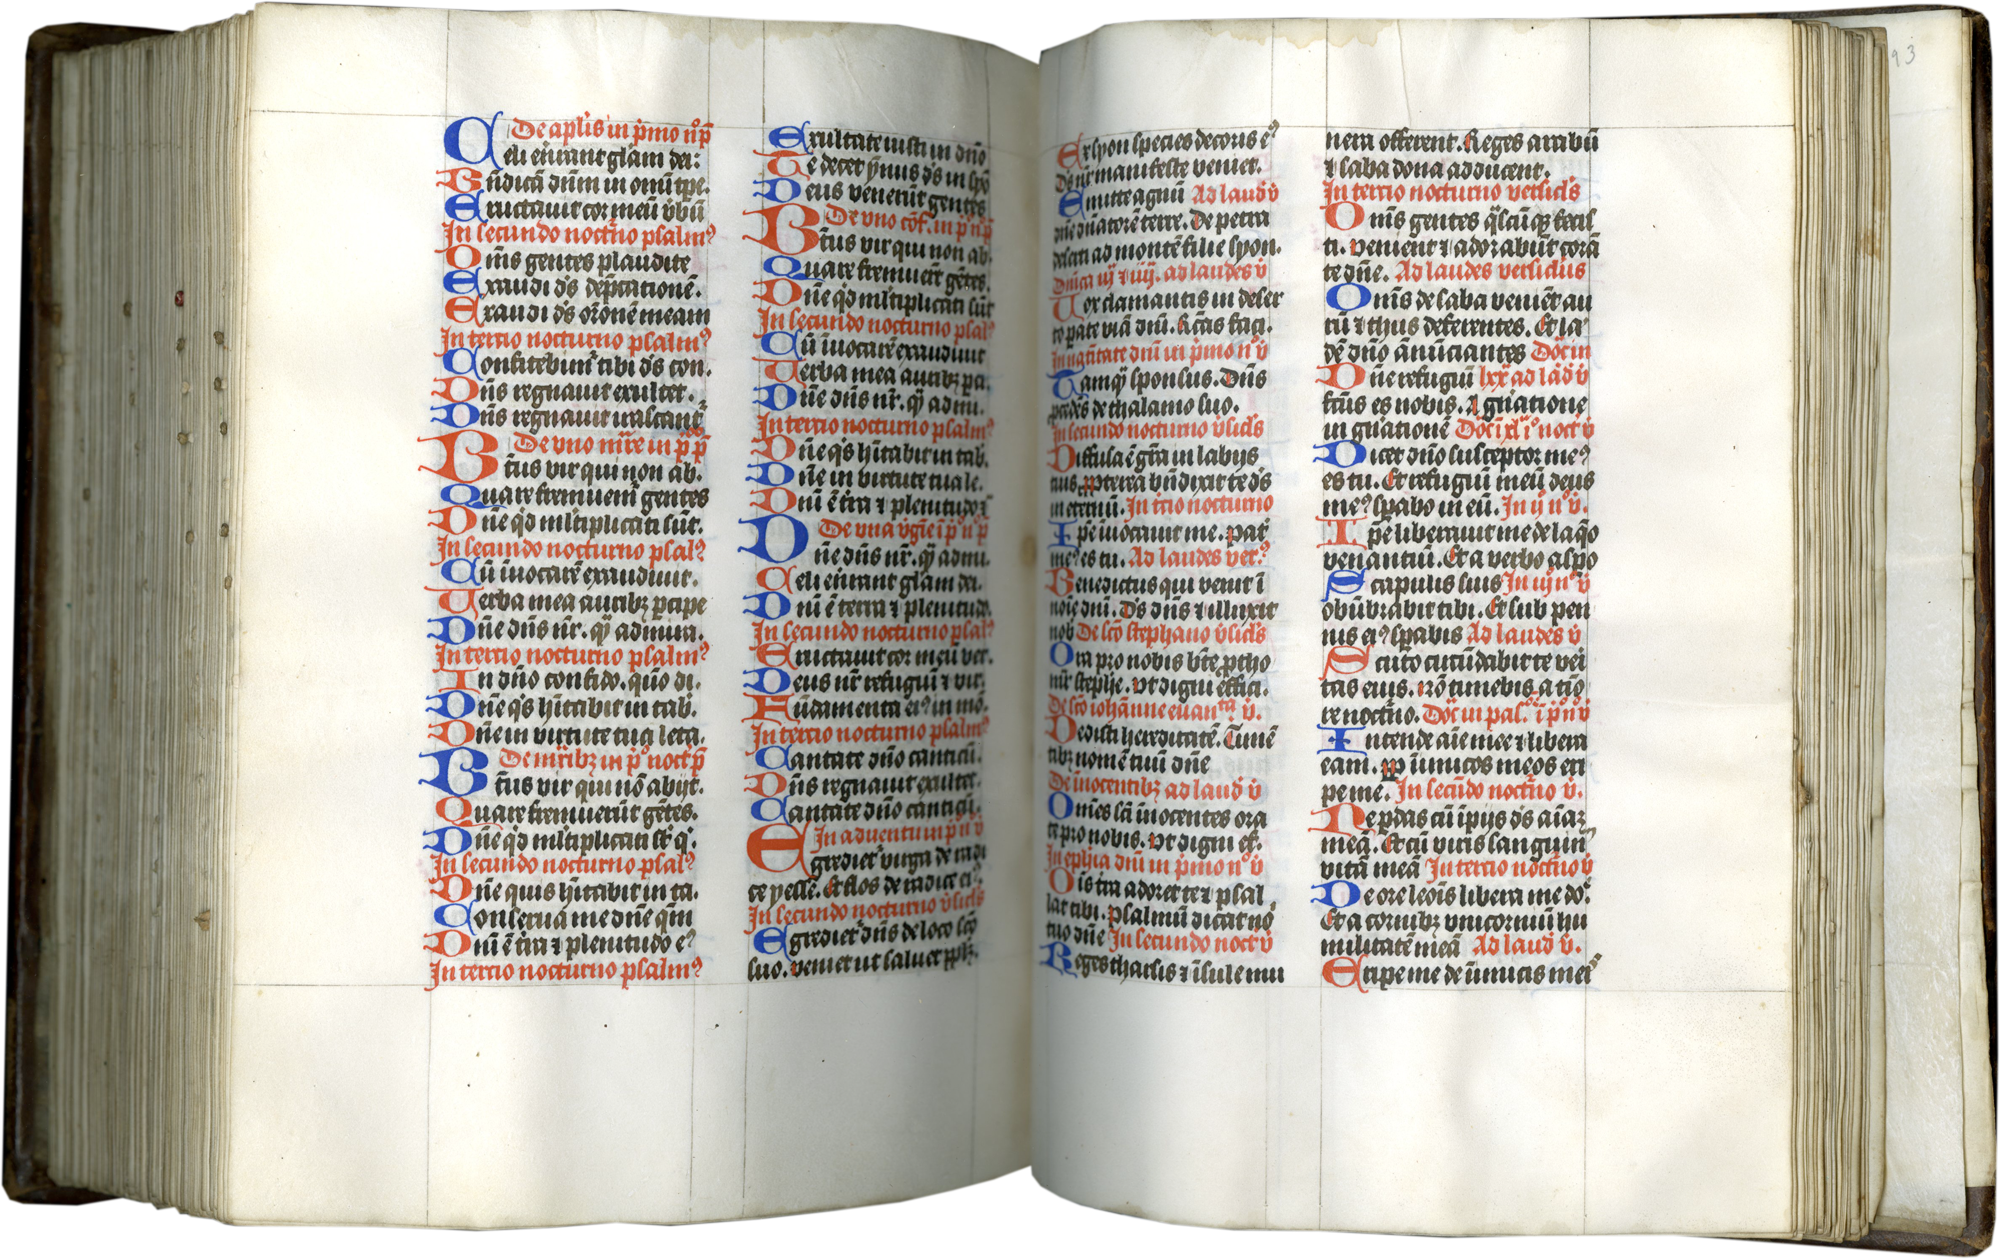 De aplis in pͥmo nͦ p̄
Celi enarrant gl̄am dei:
Bn̄dicā dn̄m in omni tpe.
Eructauit cor meū v̄bū
In secundo noctn̄o psalmꝰ
Om̄s gentes plaudite
Exaudi ds̄ dep̄cationē.
Exaudi ds̄ or̄onē meam
In tercio nocturno psalmꝰ
Confitebimr̄ tibi ds̄ con.
Dn̄s regnauit exultet.
Dn̄s regnauit irascant̄
De vno mr̄e in p̄ p̄
Btūs vir qui non ab.
Quare fremuerūt gentes
Dn̄e qͥd ml̄tiplicati sūt.
In secundo nocturno psalꝰ
Cū īuocarē exaudiuit.
Verba mea auribꝫ ꝑcipe
Dn̄e dn̄s nr̄. qͣꝫ admira.
In tercio nocturno psalmꝰ
In dn̄o confido. quō di.
Dn̄e qͥs hītabit in tab.
Dn̄e in virtute tua leta.
De mr̄ibꝫ in pͦ noct̄ p̄
Btūs vir qui nō abijt.
Quare fremuerūt gētes.
Dn̄e qͥd ml̄tiplicati st̄ qͥ.
In secundo nocturno psalꝰ
Dn̄e quis hītabit in ta.
Conserua me dn̄e qm̄
Dn̄i ē tr̄a ⁊ plenitudo eꝰ
In tercio nocturno psalmꝰ
Exultate iusti in dn̄o
Te decet ymnus ds̄ in syō
Deus venerūt gentes
De vno cōf. in p̄ n̄ p̄
Btūs vir qui non ab.
Quare fremuerūt gētes.
Dn̄e qͥd ml̄tiplicati sūt
In secundo nocturno psalꝰ
Cū īuocarē exaudiuit
Verba mea auribꝫ ꝑci.
Dn̄e dn̄s nr̄. qͣꝫ admi.
In tercio nocturno psalmꝰ
Dn̄e qͥs hītabit in tab.
Dn̄e in virtute tua le.
Dn̄i ē tr̄a ⁊ plenitudo
De vna vḡie ī p̄ n̄ p̄
Dn̄e dn̄s nr̄. qͣꝫ admi.
Celi enarrant gl̄am dei.
Dn̄i ē terra ⁊ plenitudo.
In secundo nocturno psalꝰ
Eructauit cor meū ver.
Deus nr̄ refugiū ⁊ vir.
Fūdamenta eiꝰ in mō.
In tercio nocturno psalmꝰ
Cantate dn̄o canticū.
Dn̄s regnauit exultet.
Cantate dn̄o canticū.
In aduentu in p̄ n̄ v̄
Egredietᷣ virga de radi
ce yesse. Et flos de radice eiꝰ
In secundo nocturno v̄sicls̄
Egredietᷣ dn̄s de loco sc̄o
suo. veniet ut saluet pplm̄.
Ex syon species decoris eꝰ
Ds̄ nr̄ manifeste veniet.
Emitte agnū Ad laud̄ v̄
dn̄e dn̄atorē terre. De petra
deserti ad montē filie syon.
Dn̄ica iij ⁊ iiij. ad laudes v̄
Vox clamantis in deser
to pate viā dn̄i. Rc̄as faci.
In natītate dn̄i in pͥmo nͦ v̄
Tamqͣꝫ sponsus. Dn̄s
ꝓcedēs de thalamo suo.
In secundo nocturno v̄sicls̄
Diffusa ē gr̄a in labijs
tuis. ꝓpterea bn̄dixit te ds̄
in eternū. In tercio nocturno
Ipe īuocauit me. Pat̄
meꝰ es tu. Ad laudes ver.ꝰ
Benedictus qui venit ī
noīe dn̄i. Ds̄ dn̄s ⁊ illuxit
nob̄ De sc̄o stephano v̄sicls̄
Ora pro nobis bt̄e ꝓtho
mr̄ stephe. vt digni effici.
De sc̄o iohāne euanᵗᵃ v̄.
Dedisti hereditatē. Timē
tibꝫ nomē tuū dn̄e
De īnocentibꝫ ad laud̄ v̄
Om̄es sc̄i īnocentes ora
te pro nobis. vt digni ef.
In ephīa dn̄i in pͥmo nͦ v̄
Ois tr̄a adoret te ⁊ psal
lat tibi. Psalmū dicat nōi
tuo dn̄e In secundo noct̄ v̄
Reges tharsis ⁊ īsule mu
nera offerent. Reges arabū
⁊ saba dona adducent.
In tercio nocturno versicls̄
Om̄s gentes qͣscūqꝫ fecis
ti. venient ⁊ adorabūt corā
te dn̄e. Ad laudes versiclus
Om̄s de saba veniēt au
rū ⁊ thus deferentes. Et la
dē dn̄o ānūciantes Dōc in
Dn̄e refugiū lxxͣ ad lād̄ v̄
fctūs es nobis. A gn̄atione
in gn̄ationē Dōc ī xlͣ iͦ noct̄ v̄
Dicet dn̄o susceptor meꝰ
es tu. Et refugiū meū deus
meꝰ spabo in eū. In ij nͦ v̄.
Ipe liberauit me de laqͦ
venantiū. Et a verbo aspo
Scapulis suis In iij nͦ v̄
obūbrabit tibi. Et sub pen
nis eiꝰ sꝑabis Ad laudes v̄
Scuto circūdabit te veri
tas eius. Nō timebis a tīo
re noct̄no. Dōc in pal.ͦ ī pͦ nͦ v̄
Intende aīe mee ⁊ libera
eam. ꝓp inimicos meos eri
pe me. In secūdo noctn̄o v̄.
Ne perdas cū impijs ds̄ aīaꝫ
meā. Et cū viris sanguin̄
vitā meā In tercio noctn̄o v̄
De ore leoīs libera me dō.
Et a cornibꝫ vnicorniū hu
militatē meā Ad laud̄ v̄.
Eripe me de īimicis meis
93